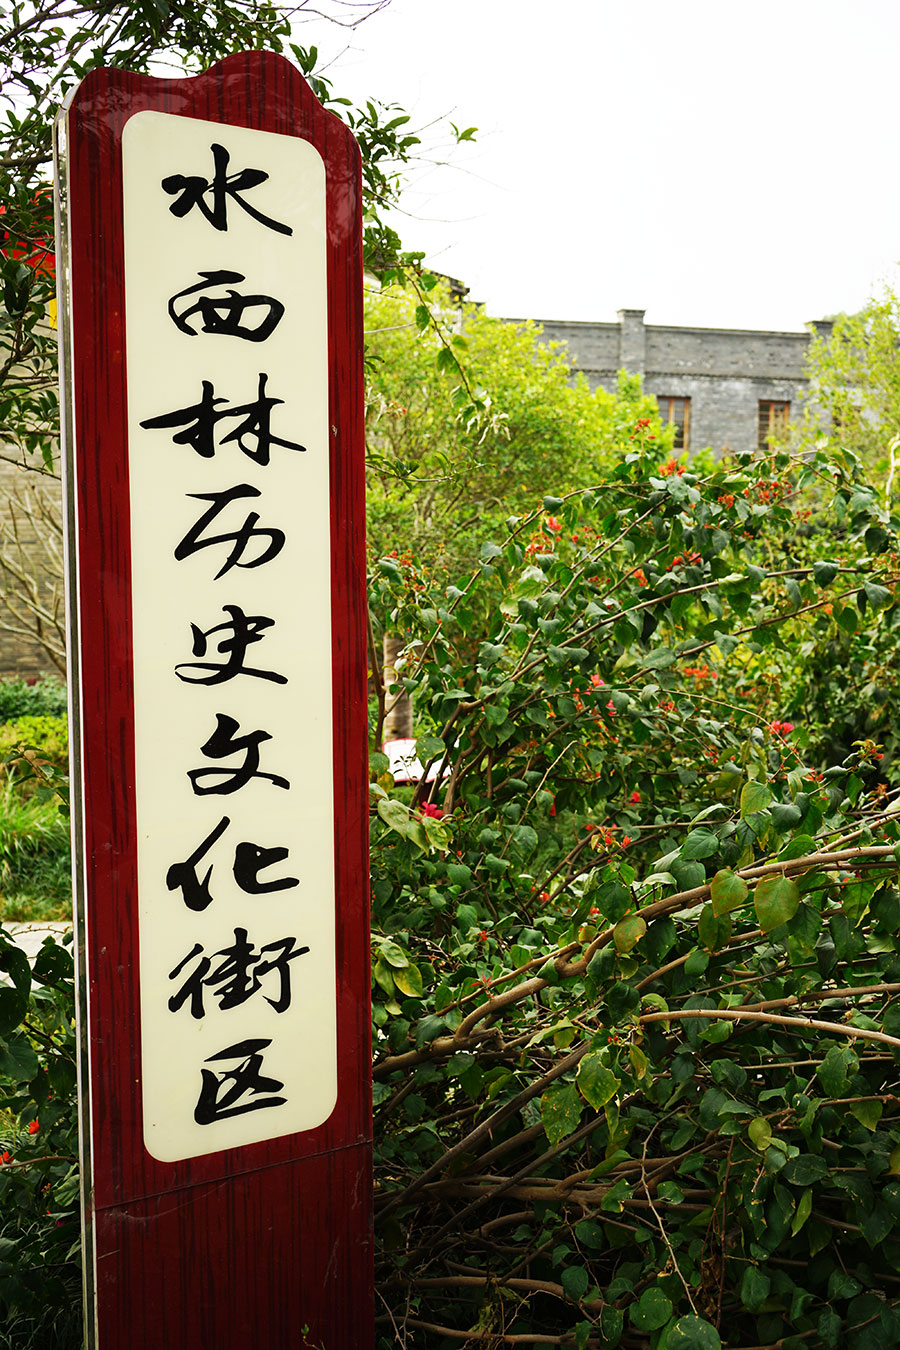 水西林历史文化街区